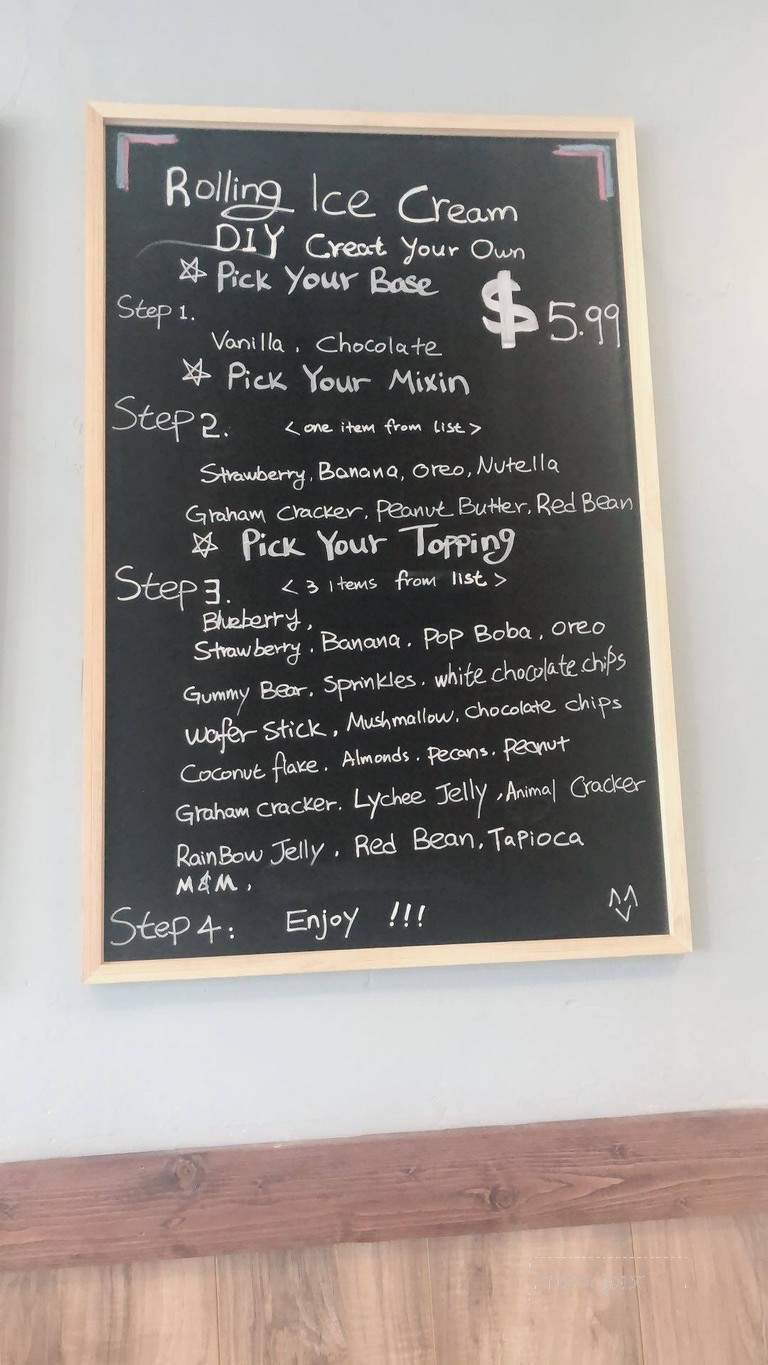 Rolling Ice Cream
DIY Creat Your Own
☆ Pick Your Base
$5.99
Step 1.
Vanilla, Chocolate
☆ Pick Your Mixin
Step 2. < one item from list >
Strawberry, Banana, oreo, Nutella
Graham cracker, Peanut Butter, Red Bean
☆ Pick Your Topping
Step 3. < 3 items from list >
Blueberry,
Strawberry, Banana, Pop Boba, oreo
Gummy Bear, Sprinkles, white chocolate chips
wafer Stick, Mushmallow, chocolate chips
Coconut flake, Almonds, pecans, peanut
Graham cracker, Lychee Jelly, Animal Cracker
RainBow Jelly, Red Bean, Tapioca
M&M,
Step 4: Enjoy !!!